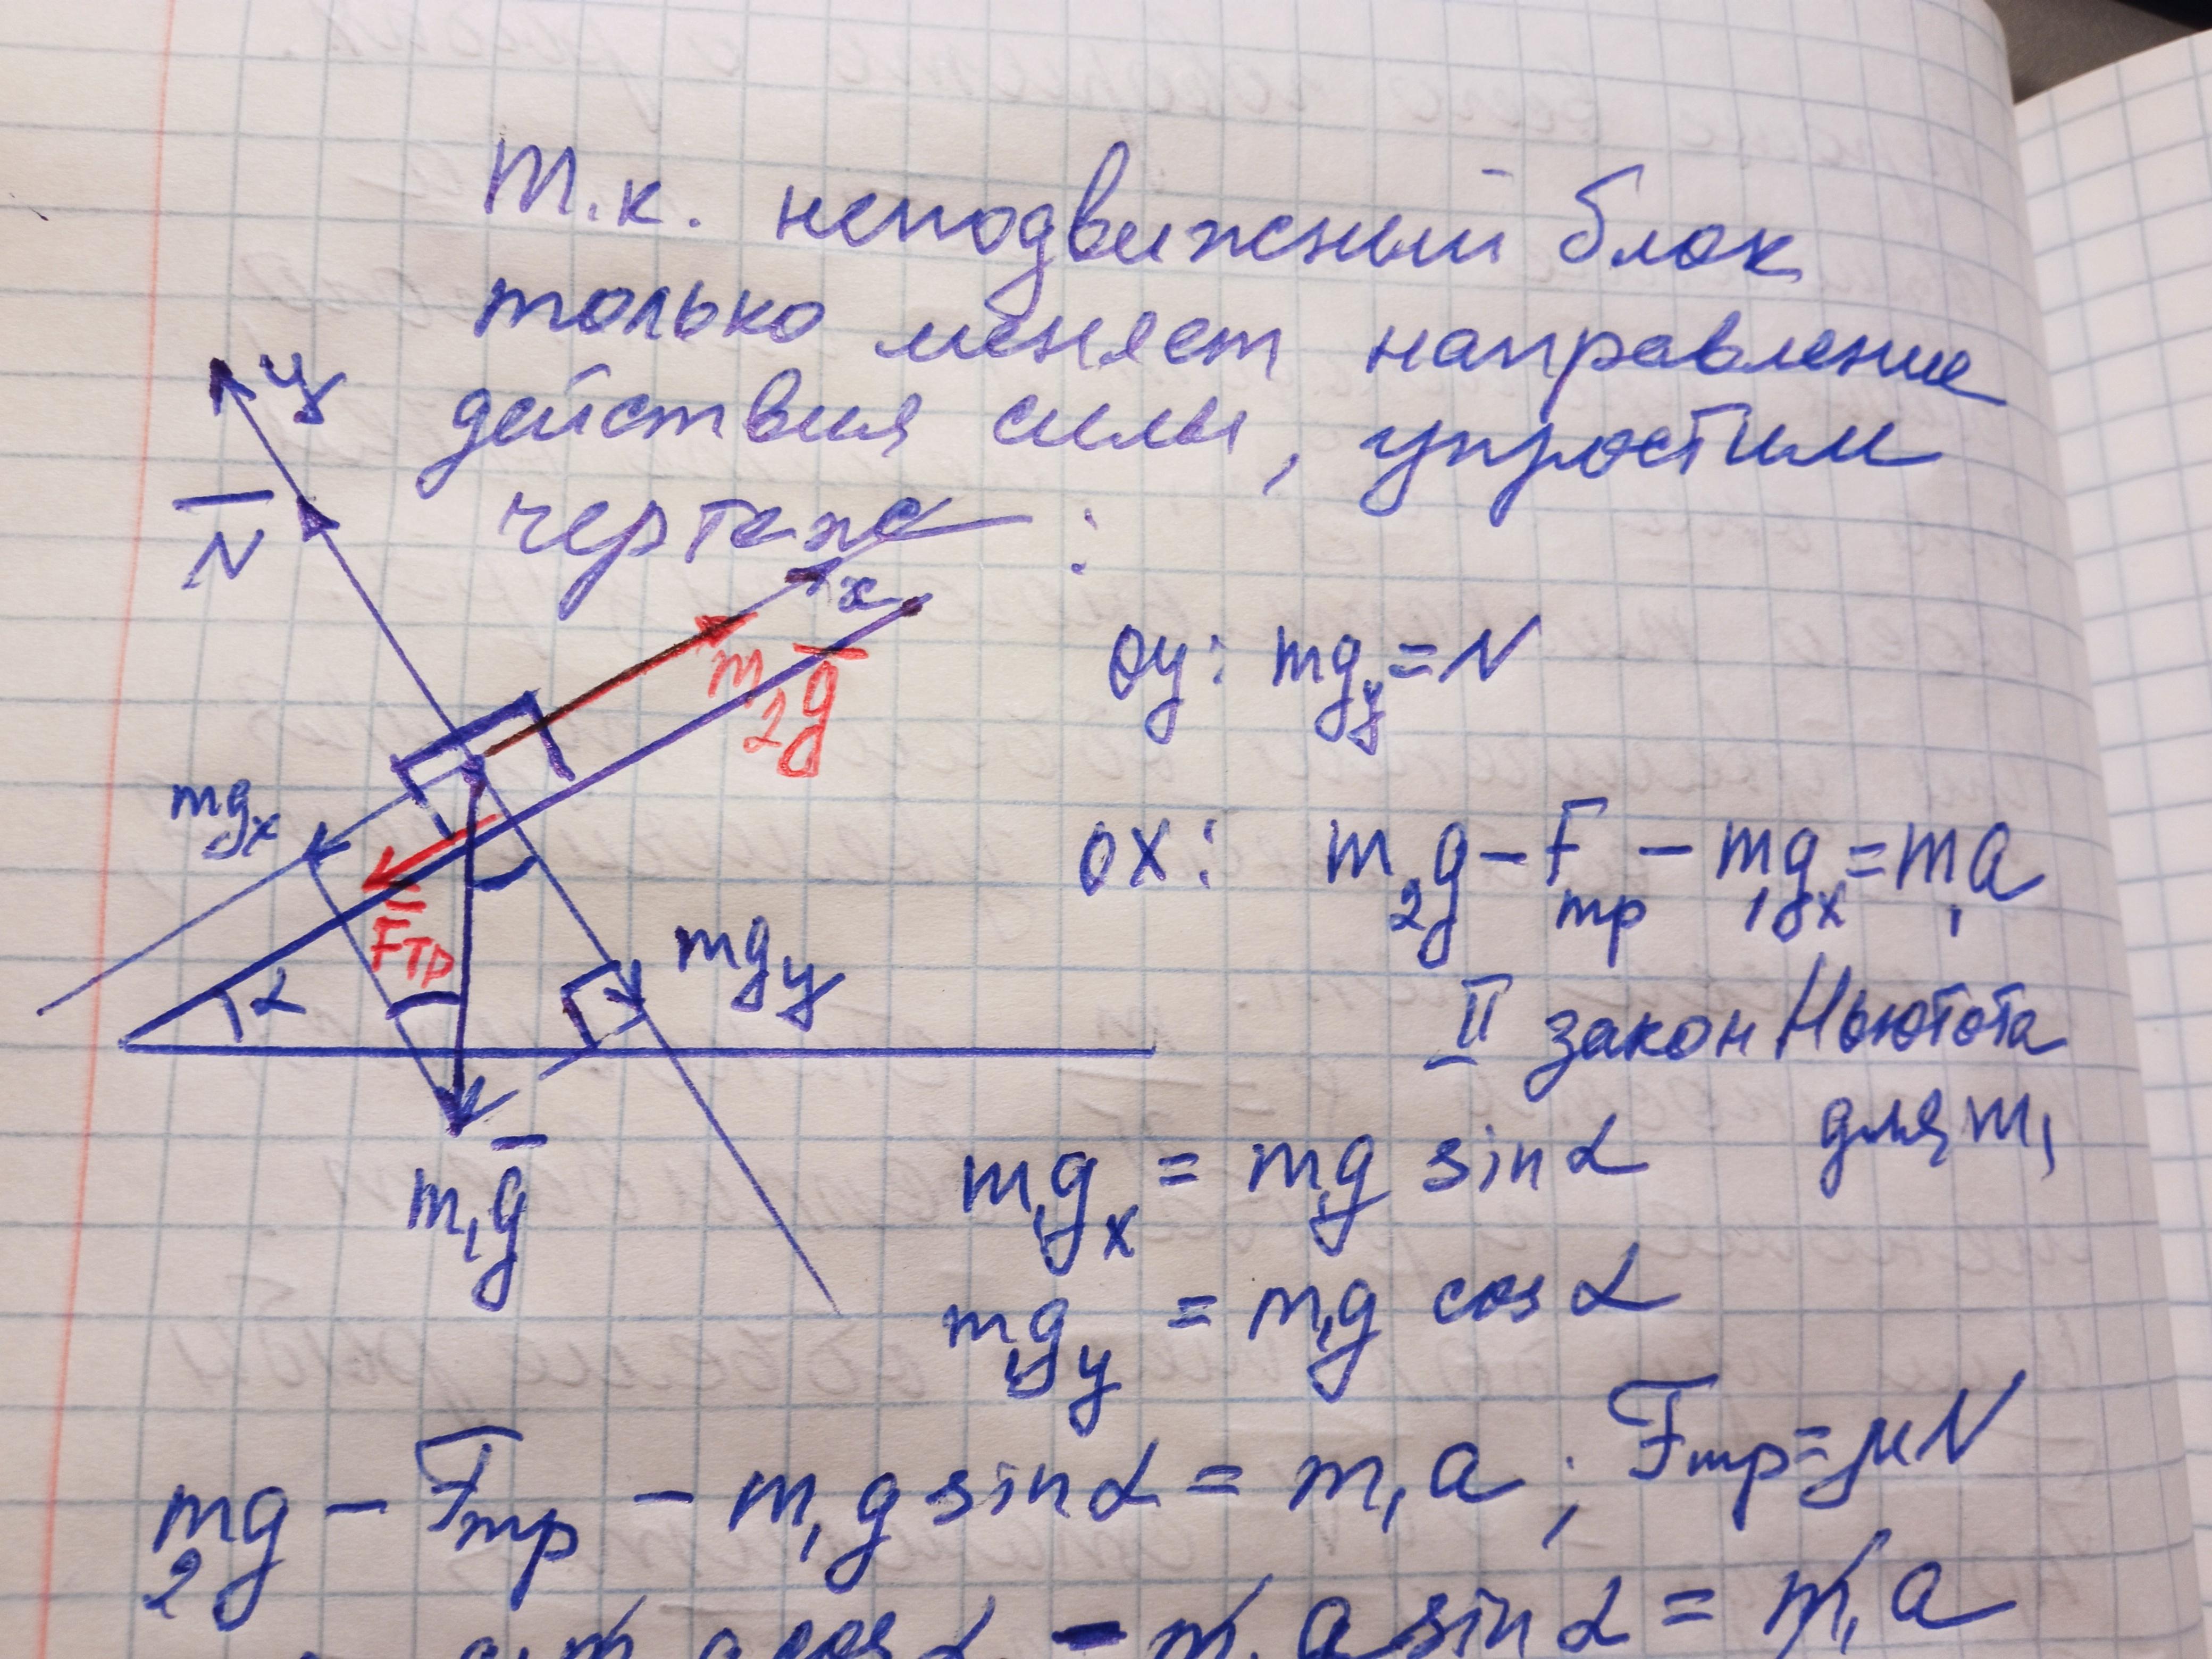 Т.к. неподвижный блок
только меняет направление
действия силы, упростим
чертеж:
y
N̅
x
m₂g̅
mgₓ
Fтр
α
mg_y
m₁g̅
oy: mg_y = N
ox: m₂g - Fтр - m₁gₓ = m₁a
II закон Ньютота
для m₁
m₁gₓ = m₁g sin α
m₁g_y = m₁g cos α
m₂g - Fтр - m₁g sin α = m₁a ; Fтр = μN
m₁g cos α - m₁g sin α = m₁a